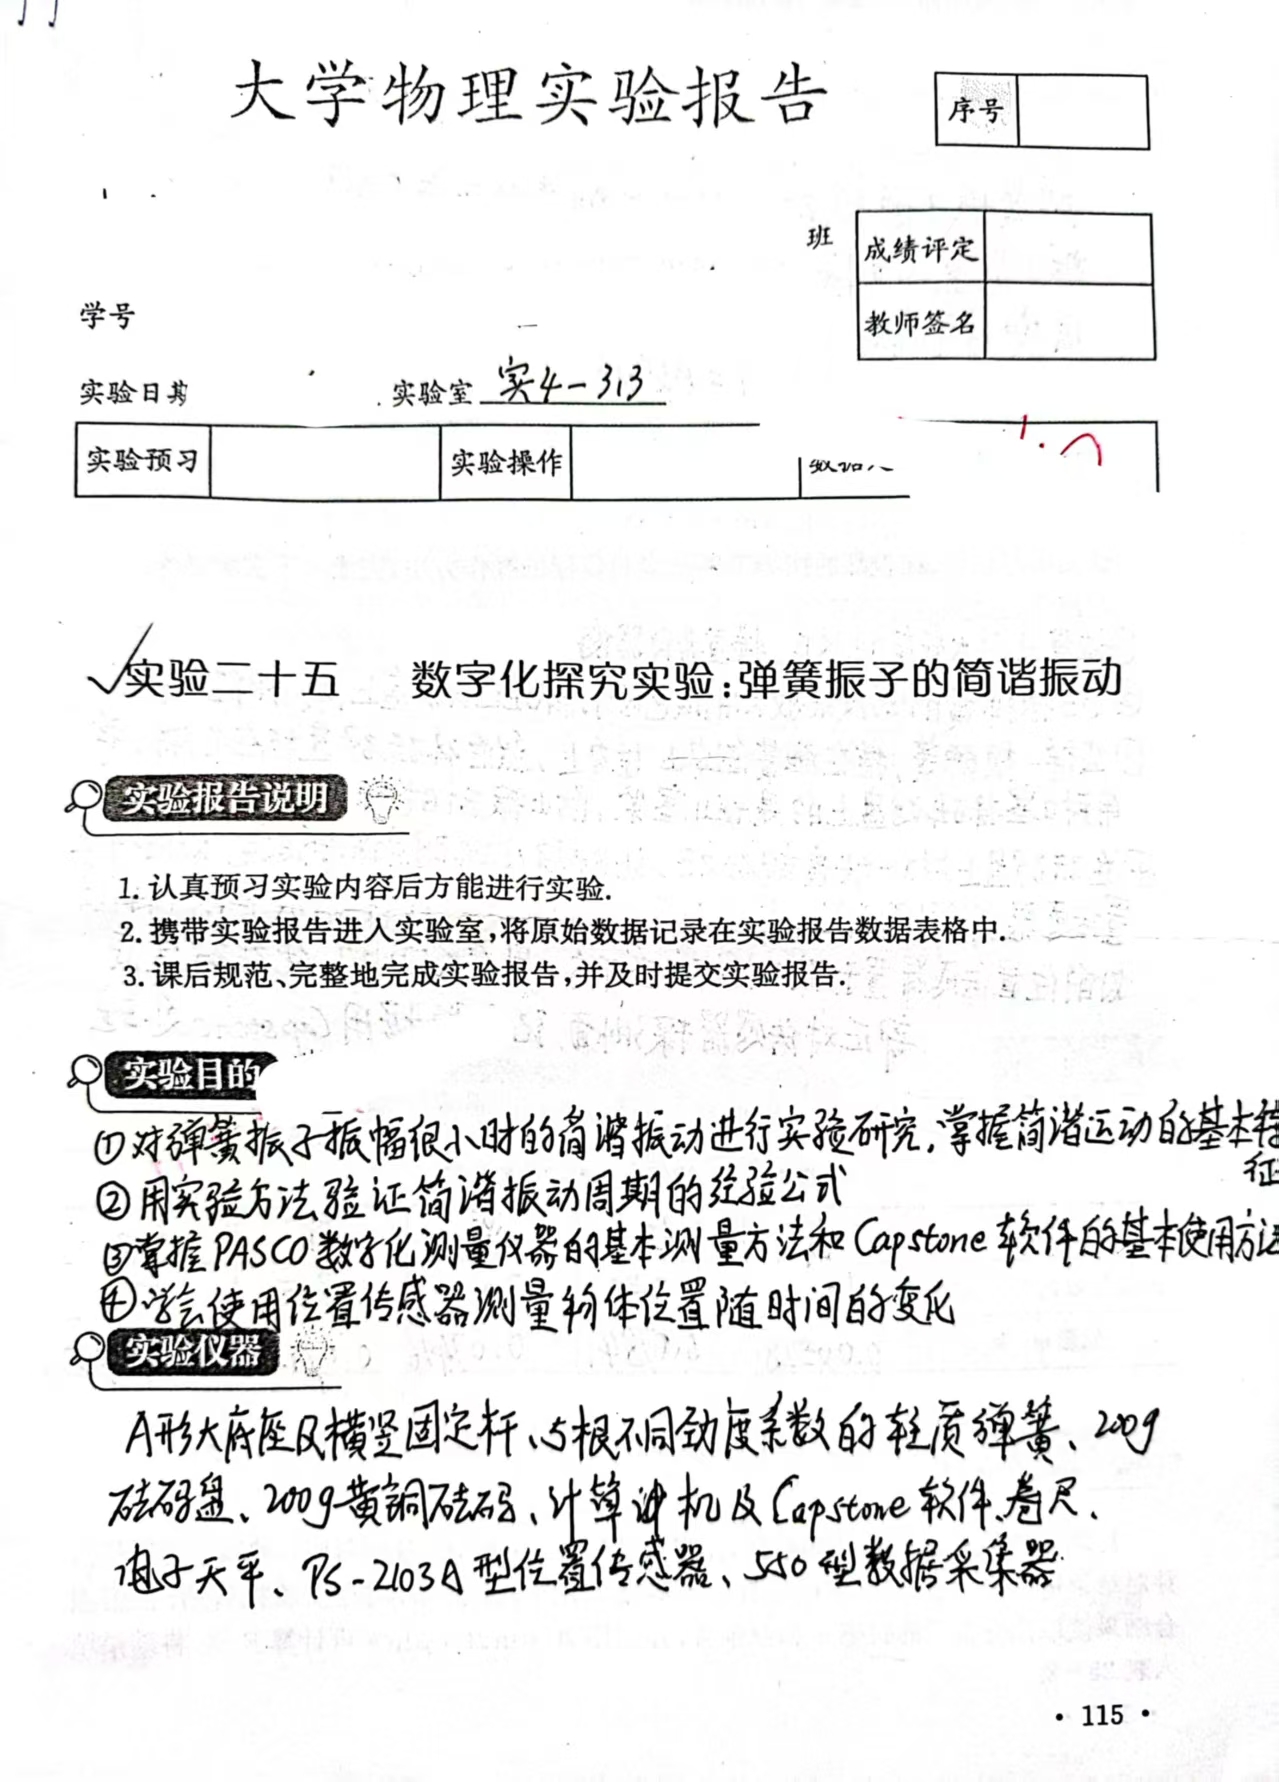 大学物理实验报告
序号
班
成绩评定
学号
教师签名
实验日期
实验室 实4-313
实验预习
实验操作
实验二十五 数字化探究实验:弹簧振子的简谐振动
实验报告说明
1. 认真预习实验内容后方能进行实验.
2. 携带实验报告进入实验室,将原始数据记录在实验报告数据表格中.
3. 课后规范、完整地完成实验报告,并及时提交实验报告.
实验目的
①对弹簧振子振幅很小时的简谐振动进行实验研究,掌握简谐运动的基本特
征
②用实验方法验证简谐振动周期的经验公式
③掌握PASCO数字化测量仪器的基本测量方法和Capstone软件的基本使用方法
④学会使用位置传感器测量物体位置随时间的变化
实验仪器
A形大底座及横竖固定杆、5根不同劲度系数的轻质弹簧、200g
砝码盘、200g黄铜砝码、计算机及Capstone软件、卷尺、
电子天平、PS-2103A型位置传感器、550型数据采集器
• 115 •